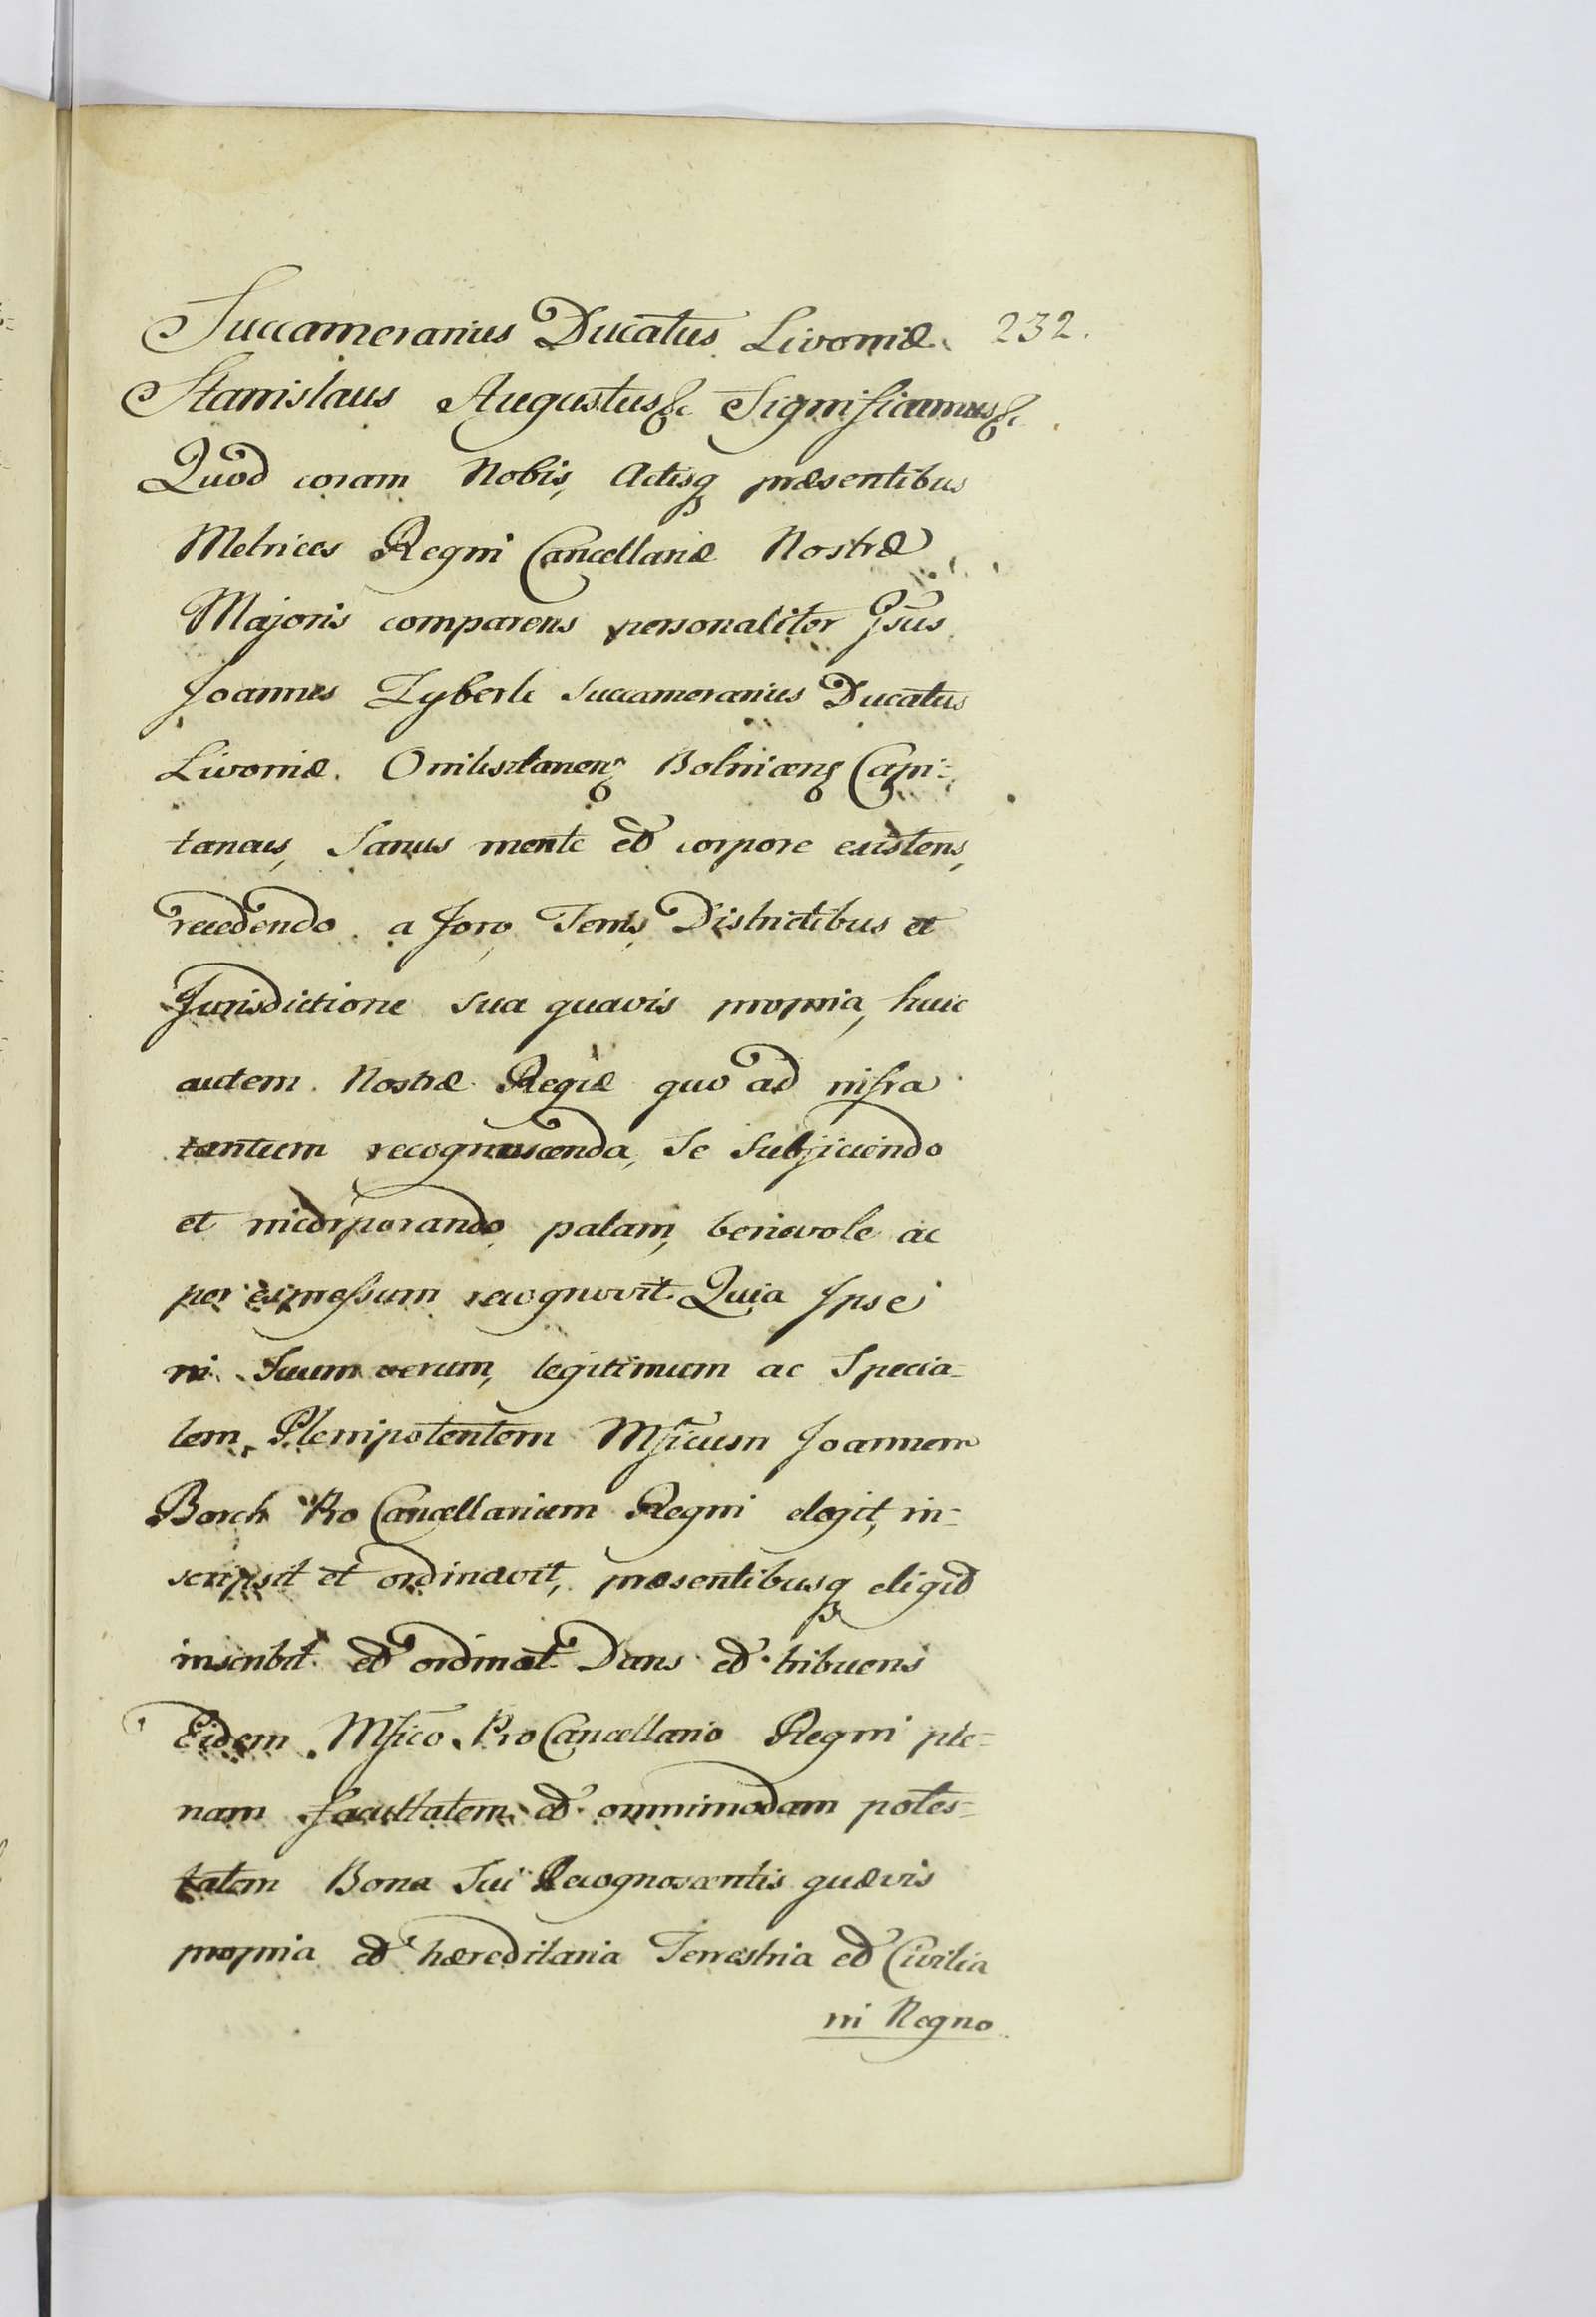 Succamerarius Ducatus Livoniæ. 232.
Stanislaus Augustus &c Significamus &c
Quod coram Nobis, Actisq præsentibus
Metrices Regni Cancellariæ Nostræ
Majoris comparens personaliter Gsus
Joannes Zyberk Succamerarius Ducatus
Livoniæ. Bolnicens Capi=
taneus, Sanus mente et corpore existens,
recedendo a Foro, Terris, Districtibus et
Jurisdictione sua quavis propria, huic
autem Nostræ Regiæ quo ad infra
tantum recognoscenda, Se Subjiciendo
et incorporando, palam, benevole ac
per expressum recognovit. Quia Ipse
in Suum verum, legitimum ac Specia=
lem Plenipotentem Mficum Joannem
Borch ProCancellarium Regni elegit, in=
scripsit et ordinavit, præsentibusq eligit
inscribit et ordinat. Dans et tribuens
Eidem Mfico ProCancellario Regni ple=
nam facultatem et omnimodam potes=
tatem Bona Sui Recognoscentis quævis
propria et hæreditaria Terrestria et Civilia
in Regno